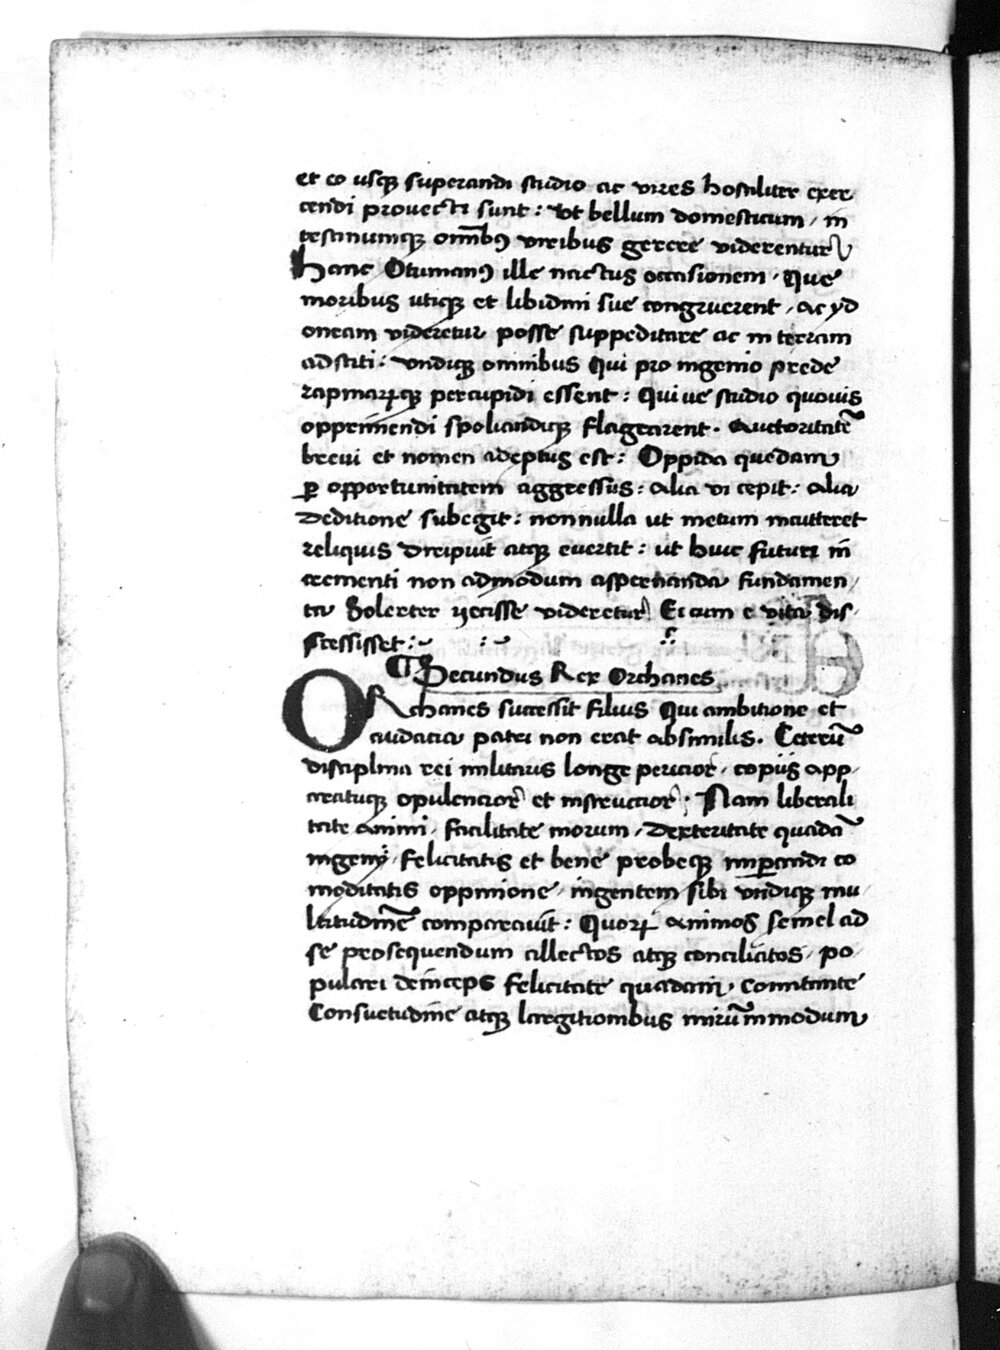 et eo usqꝫ superandi studio ac vires hostiliter exer
cendi prouecti sunt : vt bellum domesticum / in
testinumqꝫ om̄ibꝯ viribus gerere viderentur
Hanc Otumanꝯ ille nactus occasionem / que
moribus utiqꝫ et libidini sue congruerent / ac yd
oneam videretur posse suppeditare ac in terram
adstiti : vndiqꝫ omnibus qui pro ingenio prede
rapinarūqꝫ percupidi essent : qui ue studio quouis
opprimendi spoliandiqꝫ flagrarent . Auctoritatē
breui et nomen adeptus est : Oppida quedam
ꝑ opportunitatem aggressus : alia vi cepit : alia
deditione subegit : nonnulla ut metum incutteret
reliquis diripuit atqꝫ euertit : ut huic futuri in
crementi non admodum aspernanda fundamen /
ta Solerter iecisse videretur Et cum e vita dis
scessisset :
¶ Secundus Rex Orchanes
ORchanes successit filius qui ambitione et
audatia patri non erat absimilis . Ceterū
disciplina rei militaris longe pericior / copiis app
aratuqꝫ opulencior et instructior ; Nam liberali
tate animi / facilitate morum / dexteritate quadā
ingenij / felicitatis et bene probeqꝫ imꝑandi co
moditatis oppinione / ingentem sibi vndiqꝫ mu /
ltitudinē comparauit : Quoꝝ animos semel ad
se prosequendum allectos atqꝫ conciliatos / po
pulari deinceps felicitate quadam / comitante
Consuetudine atqꝫ largitionibus mirūmmodum